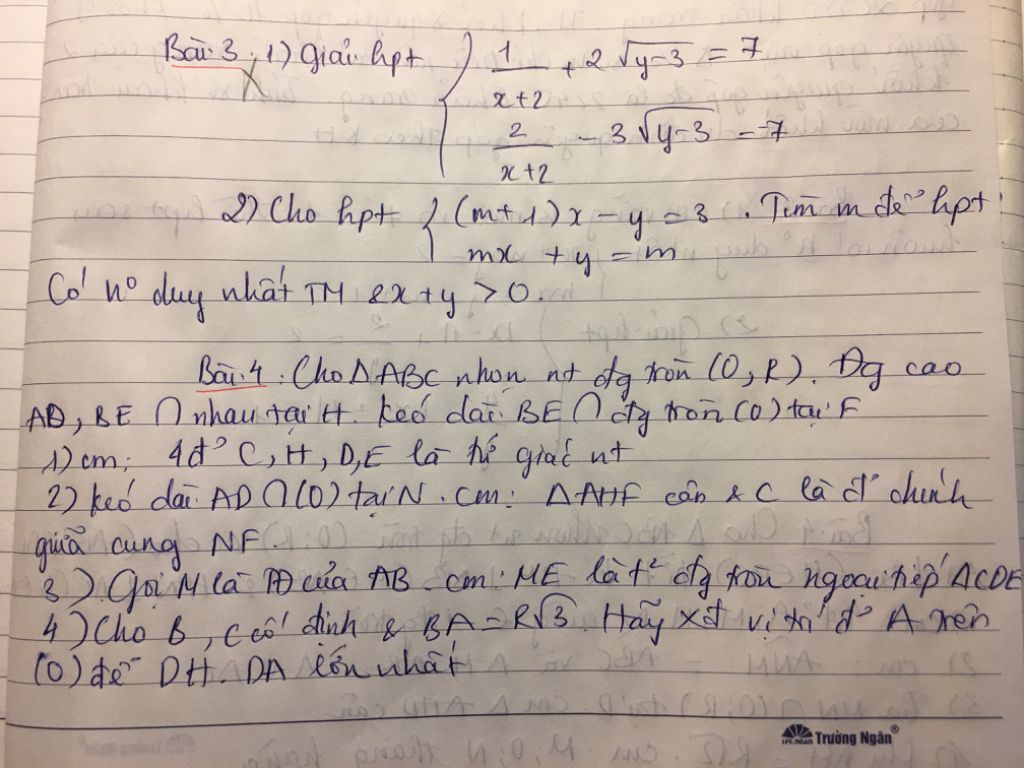 Bài 3, 1) Giải hpt { 1/(x+2) + 2√(y-3) = 7
2/(x+2) - 3√(y-3) = -7
2) Cho hpt { (m+1)x - y = 3 . Tìm m để hpt
mx + y = m
Có n° duy nhất TM & x + y > 0.
Bài 4 : Cho ΔABC nhọn nt đg tròn (O, R). Đg cao
AD, BE ∩ nhau tại H. Kéo dài BE ∩ đg tròn (O) tại F
1) cm: 4 đ' C, H, D, E là tứ giác nt
2) Kéo dài AD ∩ (O) tại N. Cm: ΔAHF cân & C là đ' chính
giữa cung NF.
3) Gọi M là TĐ của AB. cm: ME là t² đg tròn ngoại tiếp ΔCDE
4) Cho B, C cố định & BA = R√3. Hãy xđ vị trí đ' A trên
(O) để DH. DA lớn nhất
Trường Ngân®